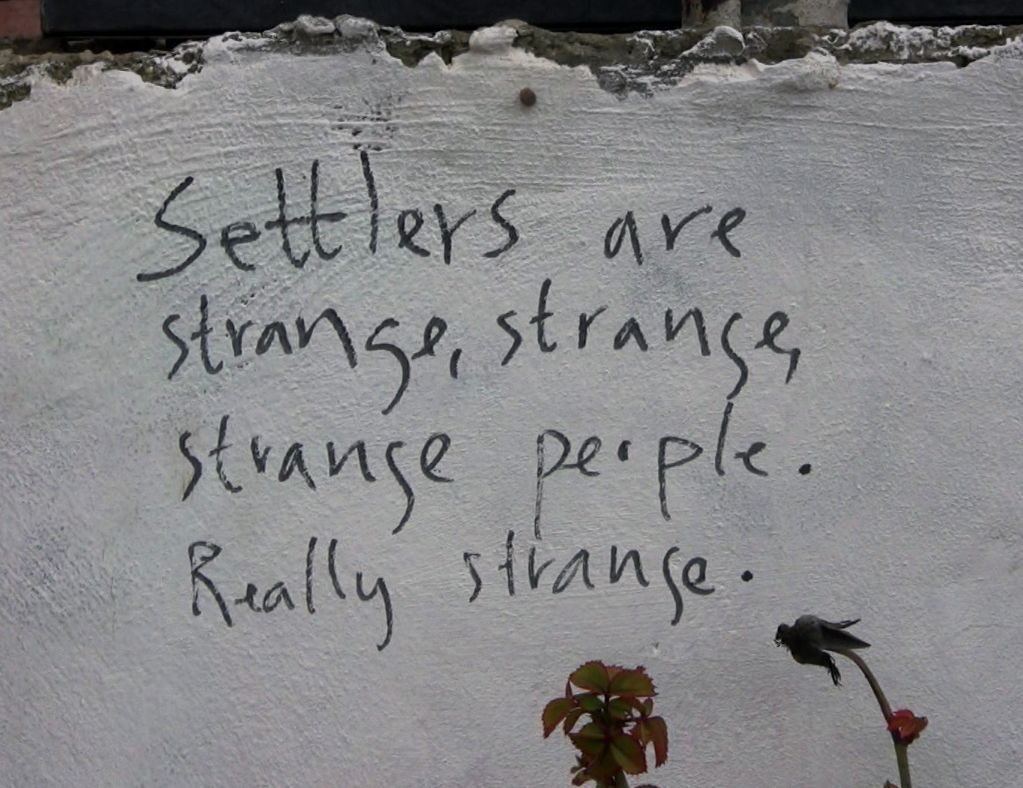 Settlers are
strange, strange,
strange people.
Really strange.